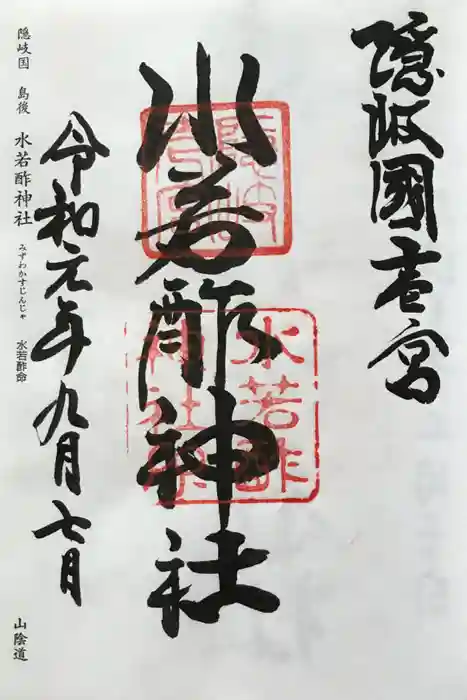 隠岐國壱宮
水若酢神社
令和元年九月七月
隠岐国 島後 水若酢神社 みずわかすじんじゃ 水若酢命 山陰道
隠岐
一宮
水若酢
神社